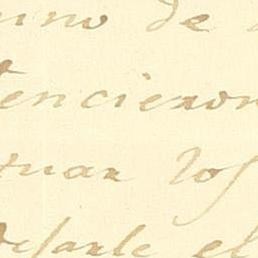 uno de
tencieron
tuar los
desarle el